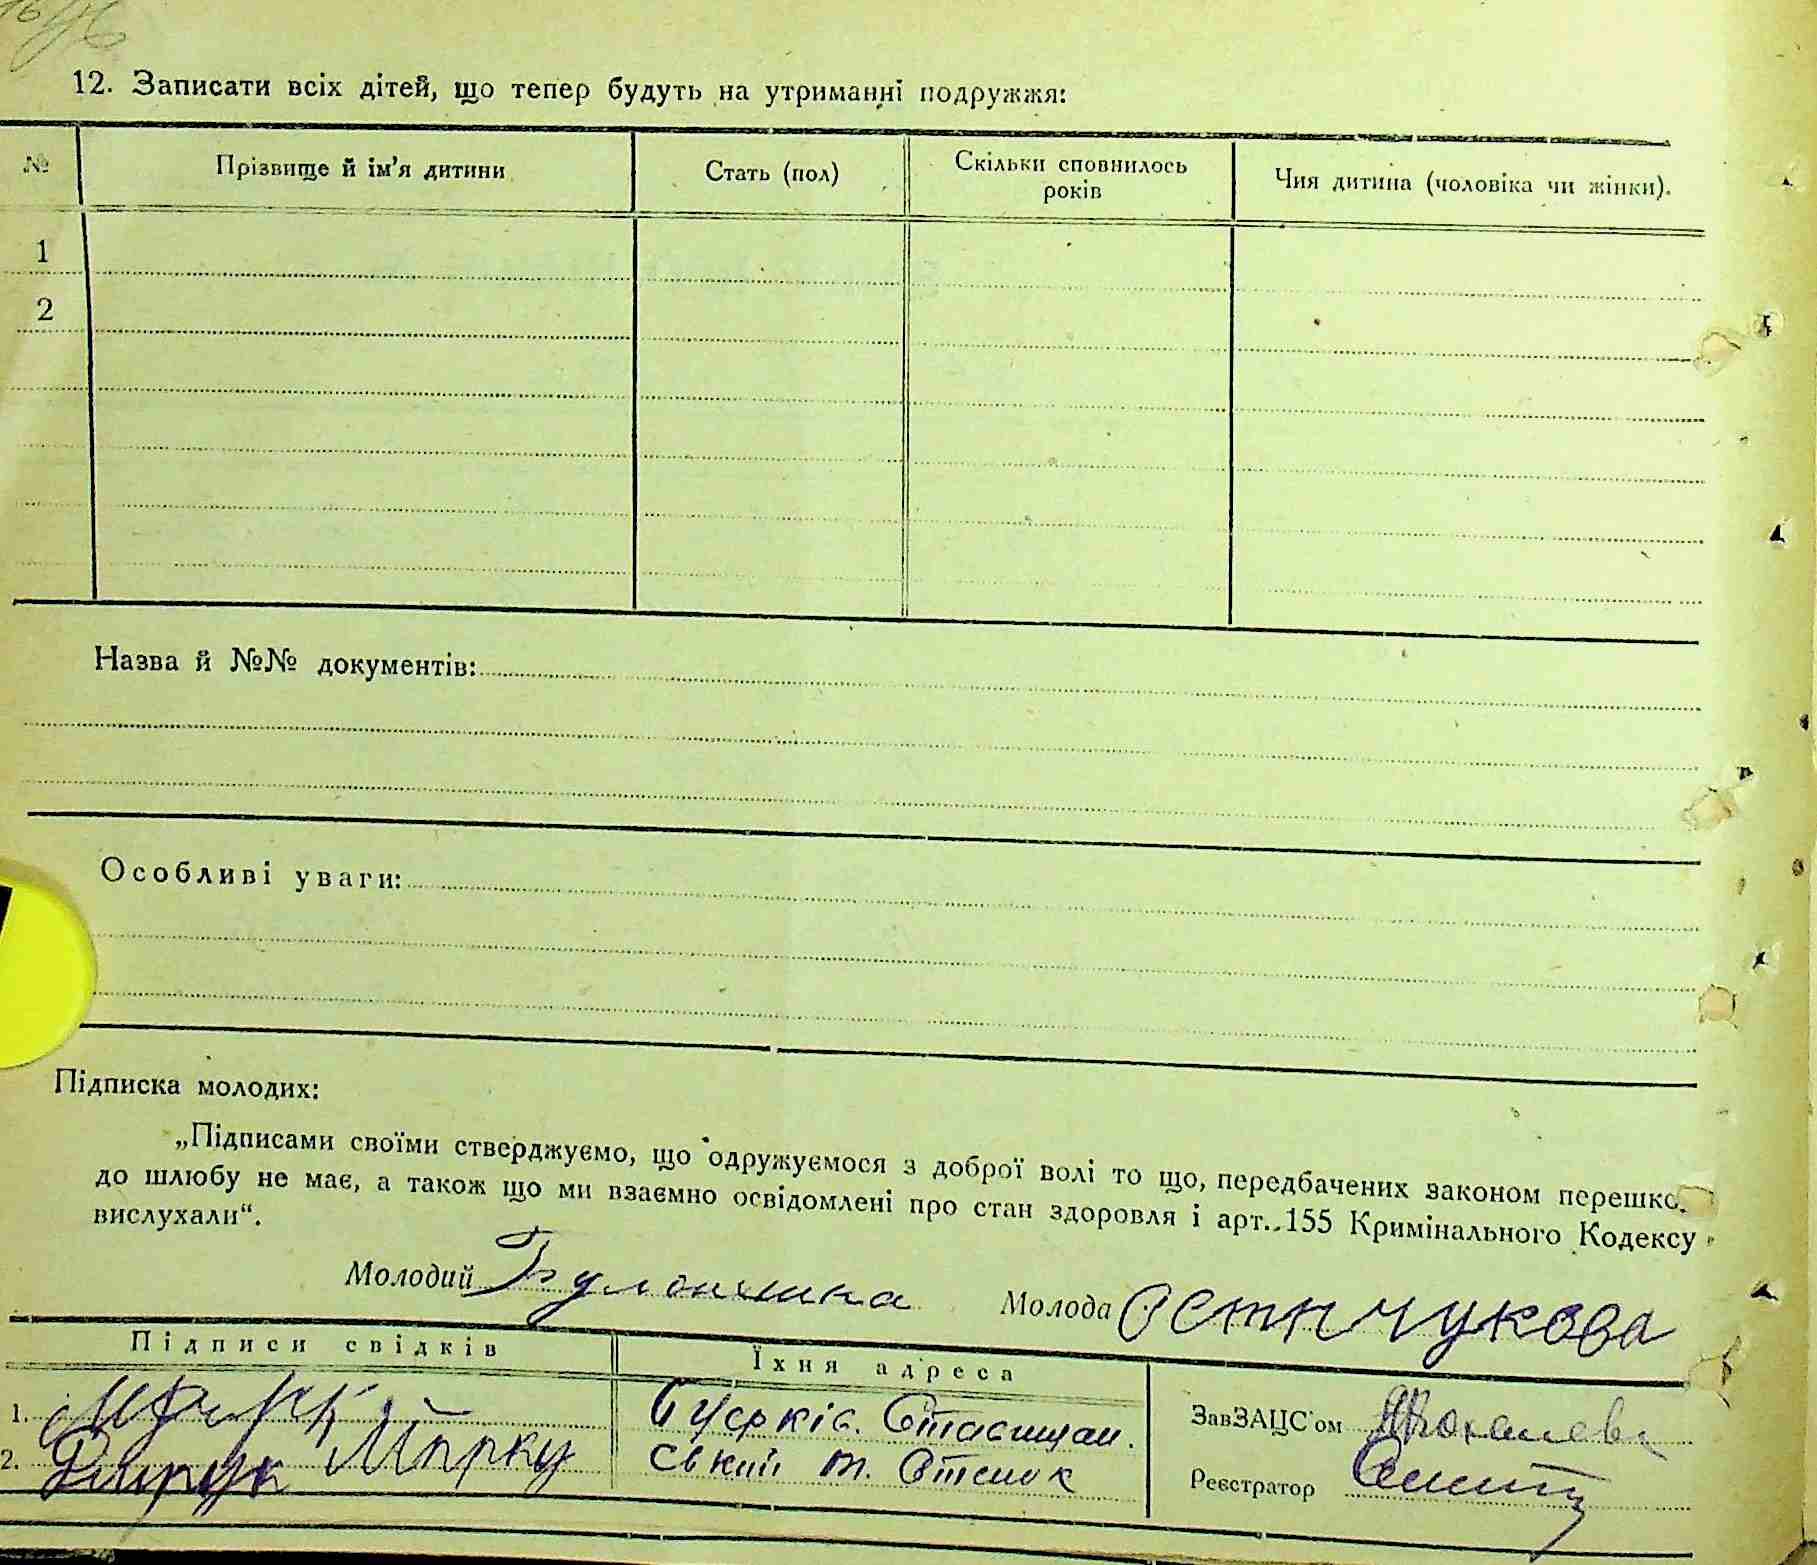 12. Записати всіх дітей, що тепер будуть на утриманні подружжя:
№ Прізвище й ім'я дитини Стать (пол) Скільки сповнилось років Чия дитина (чоловіка чи жінки).
1
2
Назва й №№ документів:
Особливі уваги:
Підписка молодих:
„Підписами своїми стверджуємо, що одружуємося з доброї волі то що, передбачених законом перешко
до шлюбу не має, а також що ми взаємно освідомлені про стан здоровля і арт. 155 Кримінального Кодексу
вислухали“.
Молодий Молода
Підписи свідків Їхня адреса
1. ЗавЗАЦС'ом
2. Реєстратор